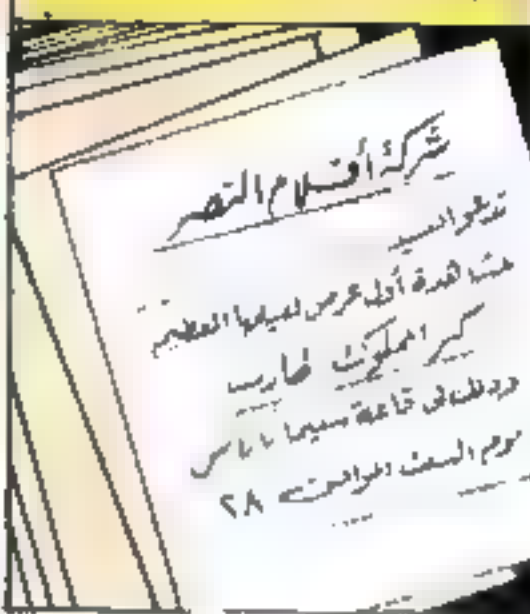 شركة أفلام النصر
تدعو السيد
مشاهدة أول عرض لفيلمها العظيم
كبر
وذلك في قاعة سينما
يوم السبت الموافق ٢٨